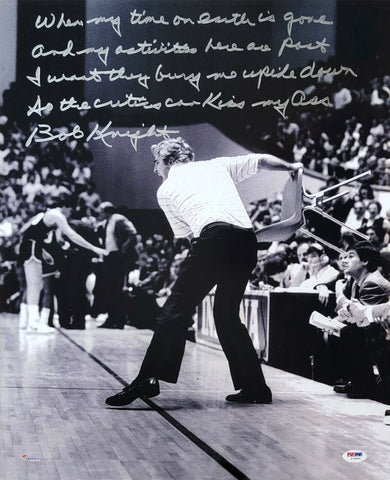 When my time on earth is gone
and my activities here are past
I want they bury me upside down
So the critics can kiss my Ass
Bob Knight
PSA/DNA